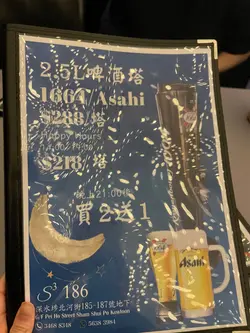 2.5L 啤酒塔
1664/Asahi
$288/塔
Happy Hours
$218/塔
買2送1
S³ 186
深水埗北河街185-187號地下
Pei Ho Street Sham Shui Po Kowloon
5468 8348
5638 3984
Asahi